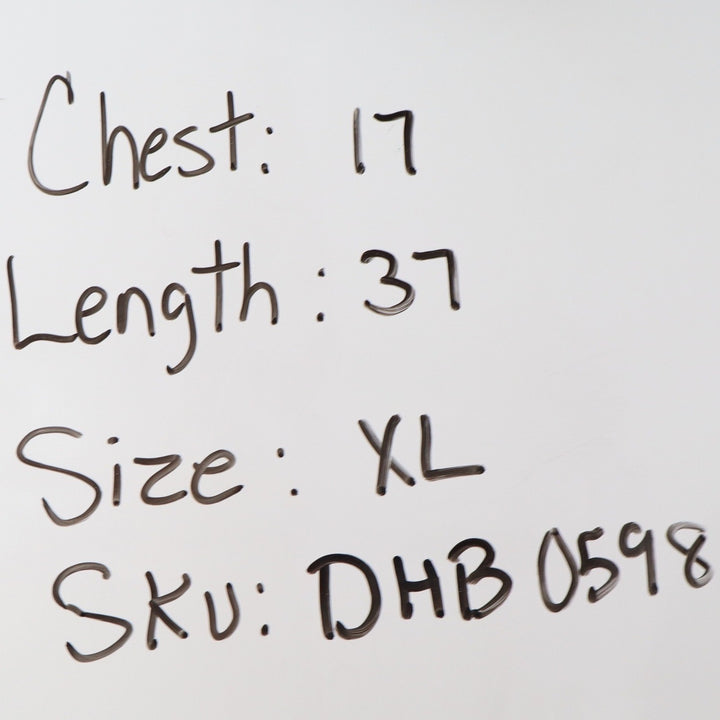 Chest: 17
Length: 37
Size: XL
SKU: DHB 0598